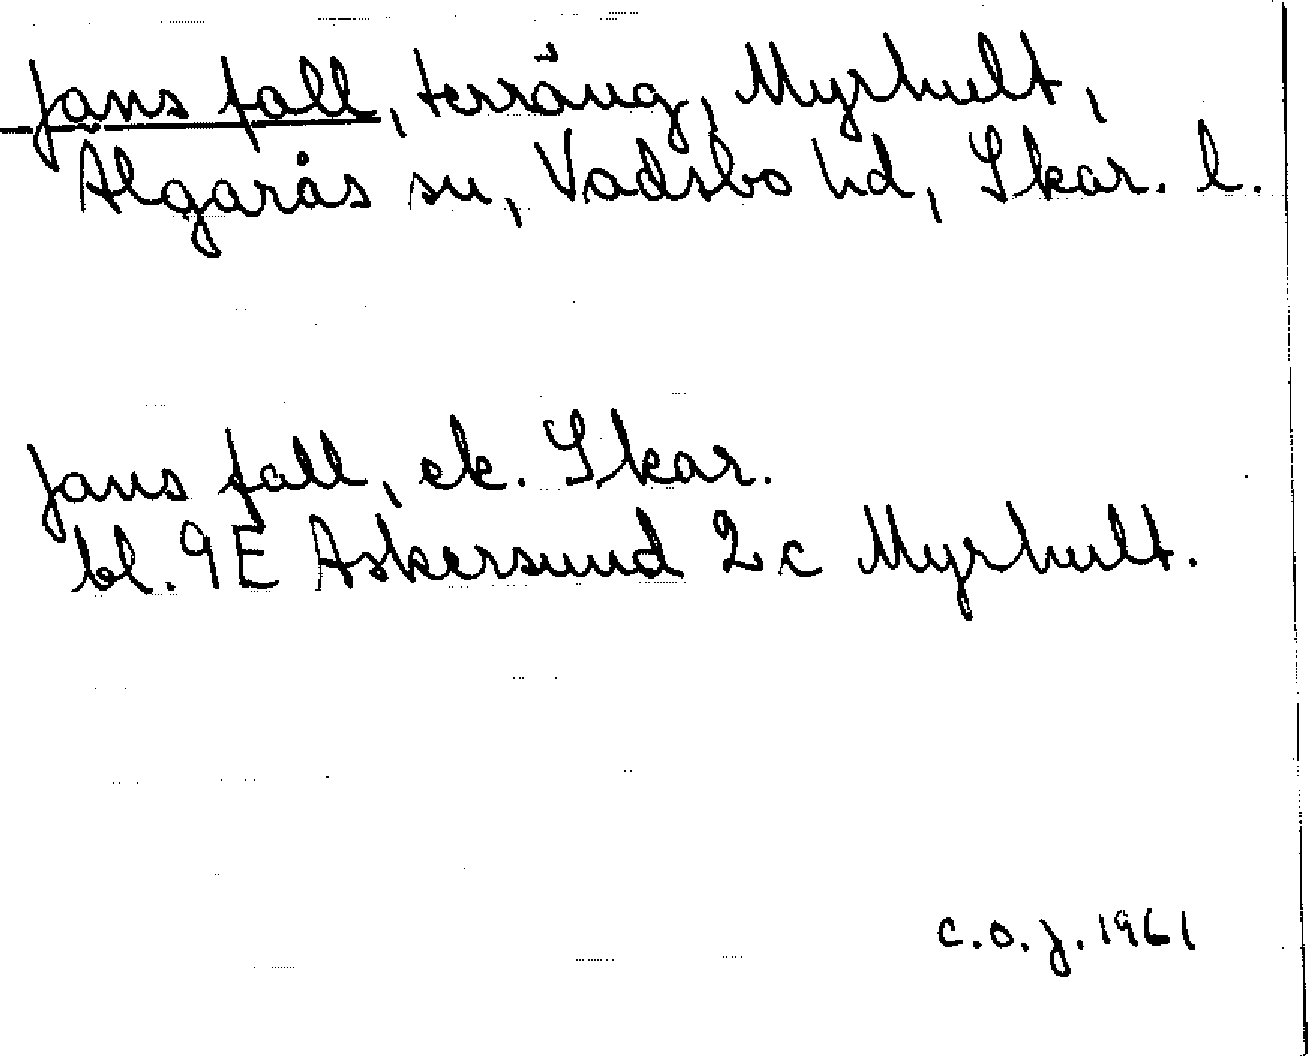 Jans fall, terräng, Myrhult,
Älgarås sn, Vadsbo hd, Skar. l.
Jans fall, ek. Skar.
bl. 9E Askersund 2c Myrhult.
C.O.J. 1961